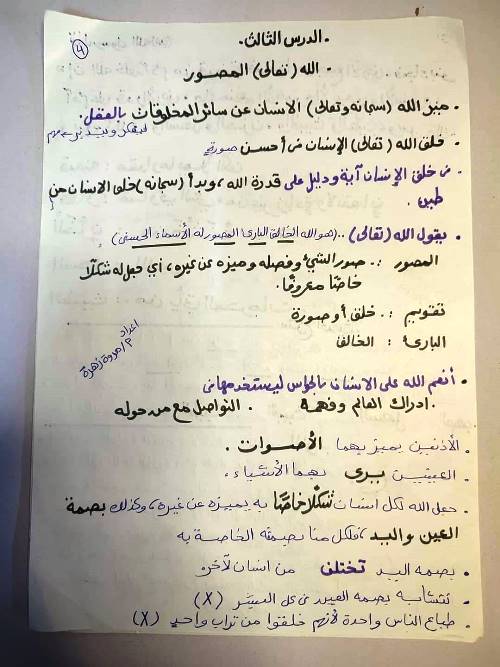 ٤
الدرس الثالث.
الله (تعالى) المصور.
. ميز الله (سبحانه وتعالى) الانسان عن سائر المخلوقات بالعقل.
ليفكر ويتدبر
. خلق الله (تعالى) الإنسان في أحسن صورة
. في خلق الإنسان آية ودليل على قدرة الله، وبدأ (سبحانه) خلق الانسان من
طين.
. يقول الله (تعالى).. (هو الله الخالق البارئ المصور له الأسماء الحسنى)
المصور :. صور الشئ وفصله وميزه عن غيره، أي جعل له شكلاً
خاصًا معروفًا.
تقويم :. خلق أو صورة
البارئ : الخالق
اعداد
م/ مروة زهرة
. أنعم الله على الانسان بالحواس ليستخدمها في
. ادراك العالم وفهمه . التواصل مع من حوله
. الأذنين يميز بهما الأصوات.
. العينين يرى بهما الأشياء.
. جعل الله لكل انسان شكلاً خاصًا به يميزه عن غيره، وكذلك بصمة
العين واليد، فلكل منا بصمته الخاصة به
. بصمه اليد تختلف من انسان لآخر.
. تتشابه بصمه العين في كل البشر (X)
. طباع الناس واحدة لأنهم خلقوا من تراب واحد (X)